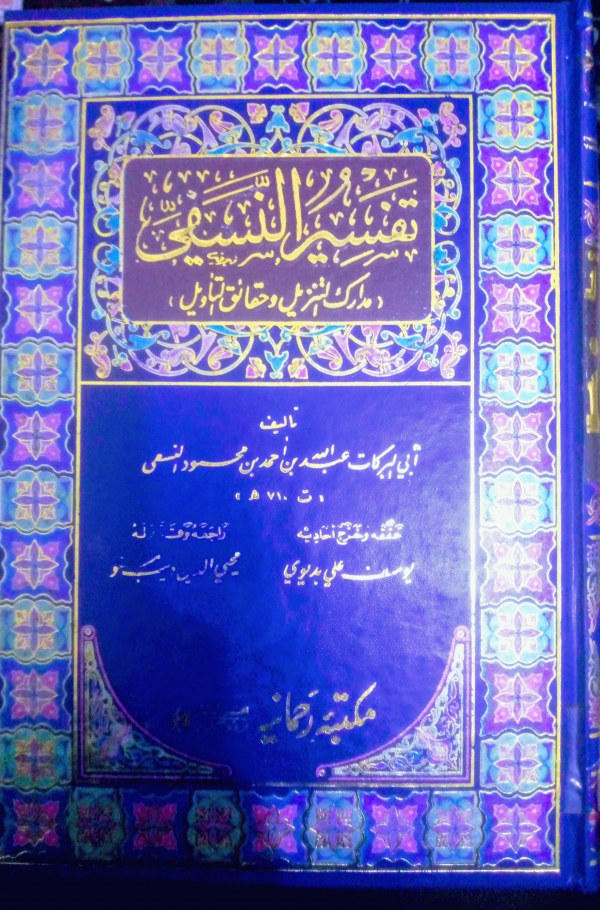 تفسير النسفي
(مدارك التنزيل وحقائق التأويل)
تأليف
أبي البركات عبد الله بن أحمد بن محمود النسفي
« ت ٧١٠ هـ »
حققه وخرج أحاديثه
يوسف علي بديوي
راجعه وقدم له
محيي الدين ديب مستو
مكتبه رحمانيه